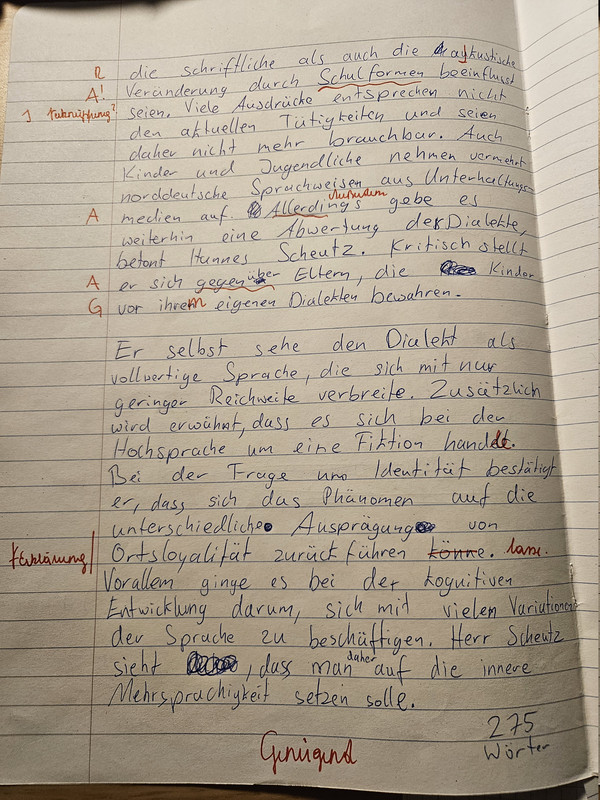 R die schriftliche als auch die akustische
A! Veränderung durch Schulformen beeinflusst
seien. Viele Ausdrücke entsprechen nicht
den aktuellen Tätigkeiten und seien
daher nicht mehr brauchbar. Auch
Kinder und Jugendliche nehmen vermehrt
norddeutsche Sprachweisen aus Unterhaltungs-
A medien auf. Allerdings gebe es
weiterhin eine Abwertung der Dialekte,
betont Hannes Scheutz. Kritisch stellt
A er sich gegenüber Eltern, die Kinder
G vor ihrem eigenen Dialekten bewahren.
Er selbst sehe den Dialekt als
vollwertige Sprache, die sich mit nur
geringer Reichweite verbreite. Zusätzlich
wird erwähnt, dass es sich bei der
Hochsprache um eine Fiktion handelt.
Bei der Frage um Identität bestätigt
er, dass sich das Phänomen auf die
unterschiedliche Ausprägung von
Erklärung Ortsloyalität zurückführen könne. lasse.
Vorallem ginge es bei der kognitiven
Entwicklung darum, sich mit vielen Variationen
der Sprache zu beschäftigen. Herr Scheutz
sieht , dass man daher auf die innere
Mehrsprachigkeit setzen solle.
275
Wörter
Genügend